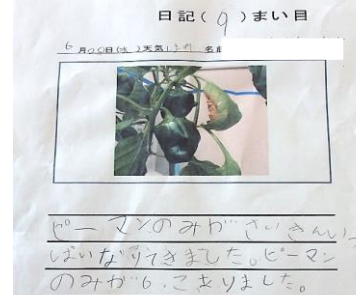 日記(9)まい目
6月20日(水)天気はれ 名前
ピーマンのみが さいきんいっ
ぱいなってきました。ピーマン
のみが6こありました。